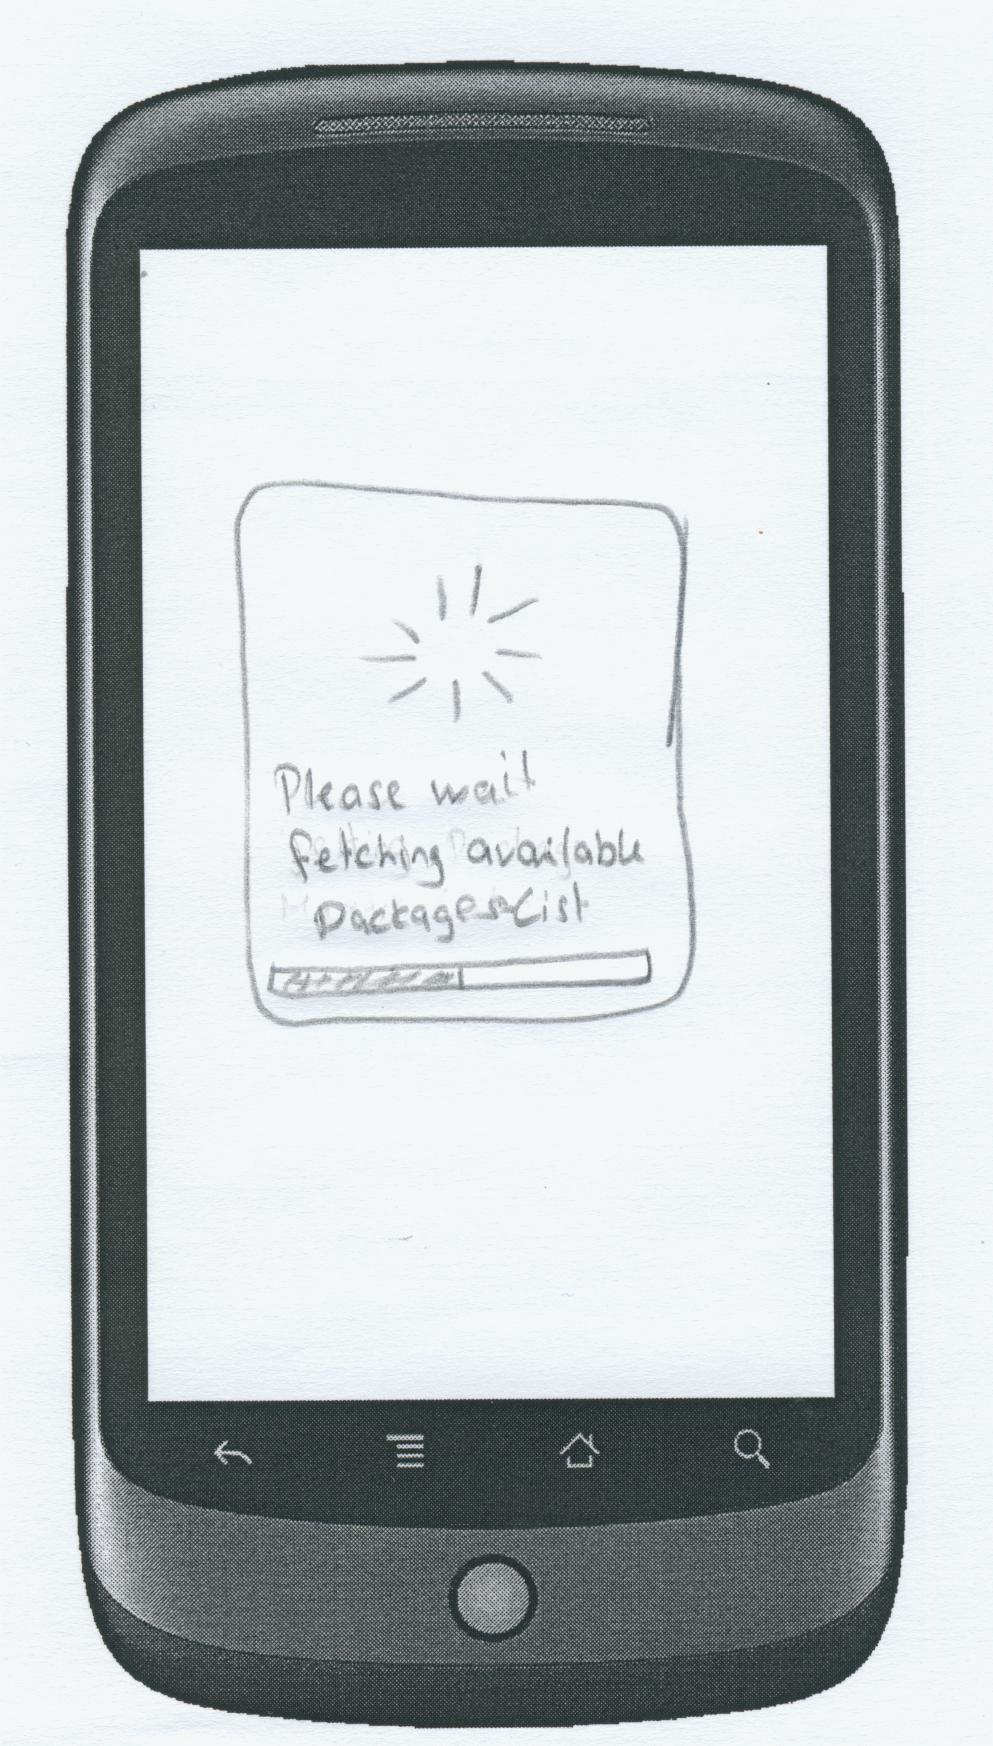 Please wait
fetching available
Packages List